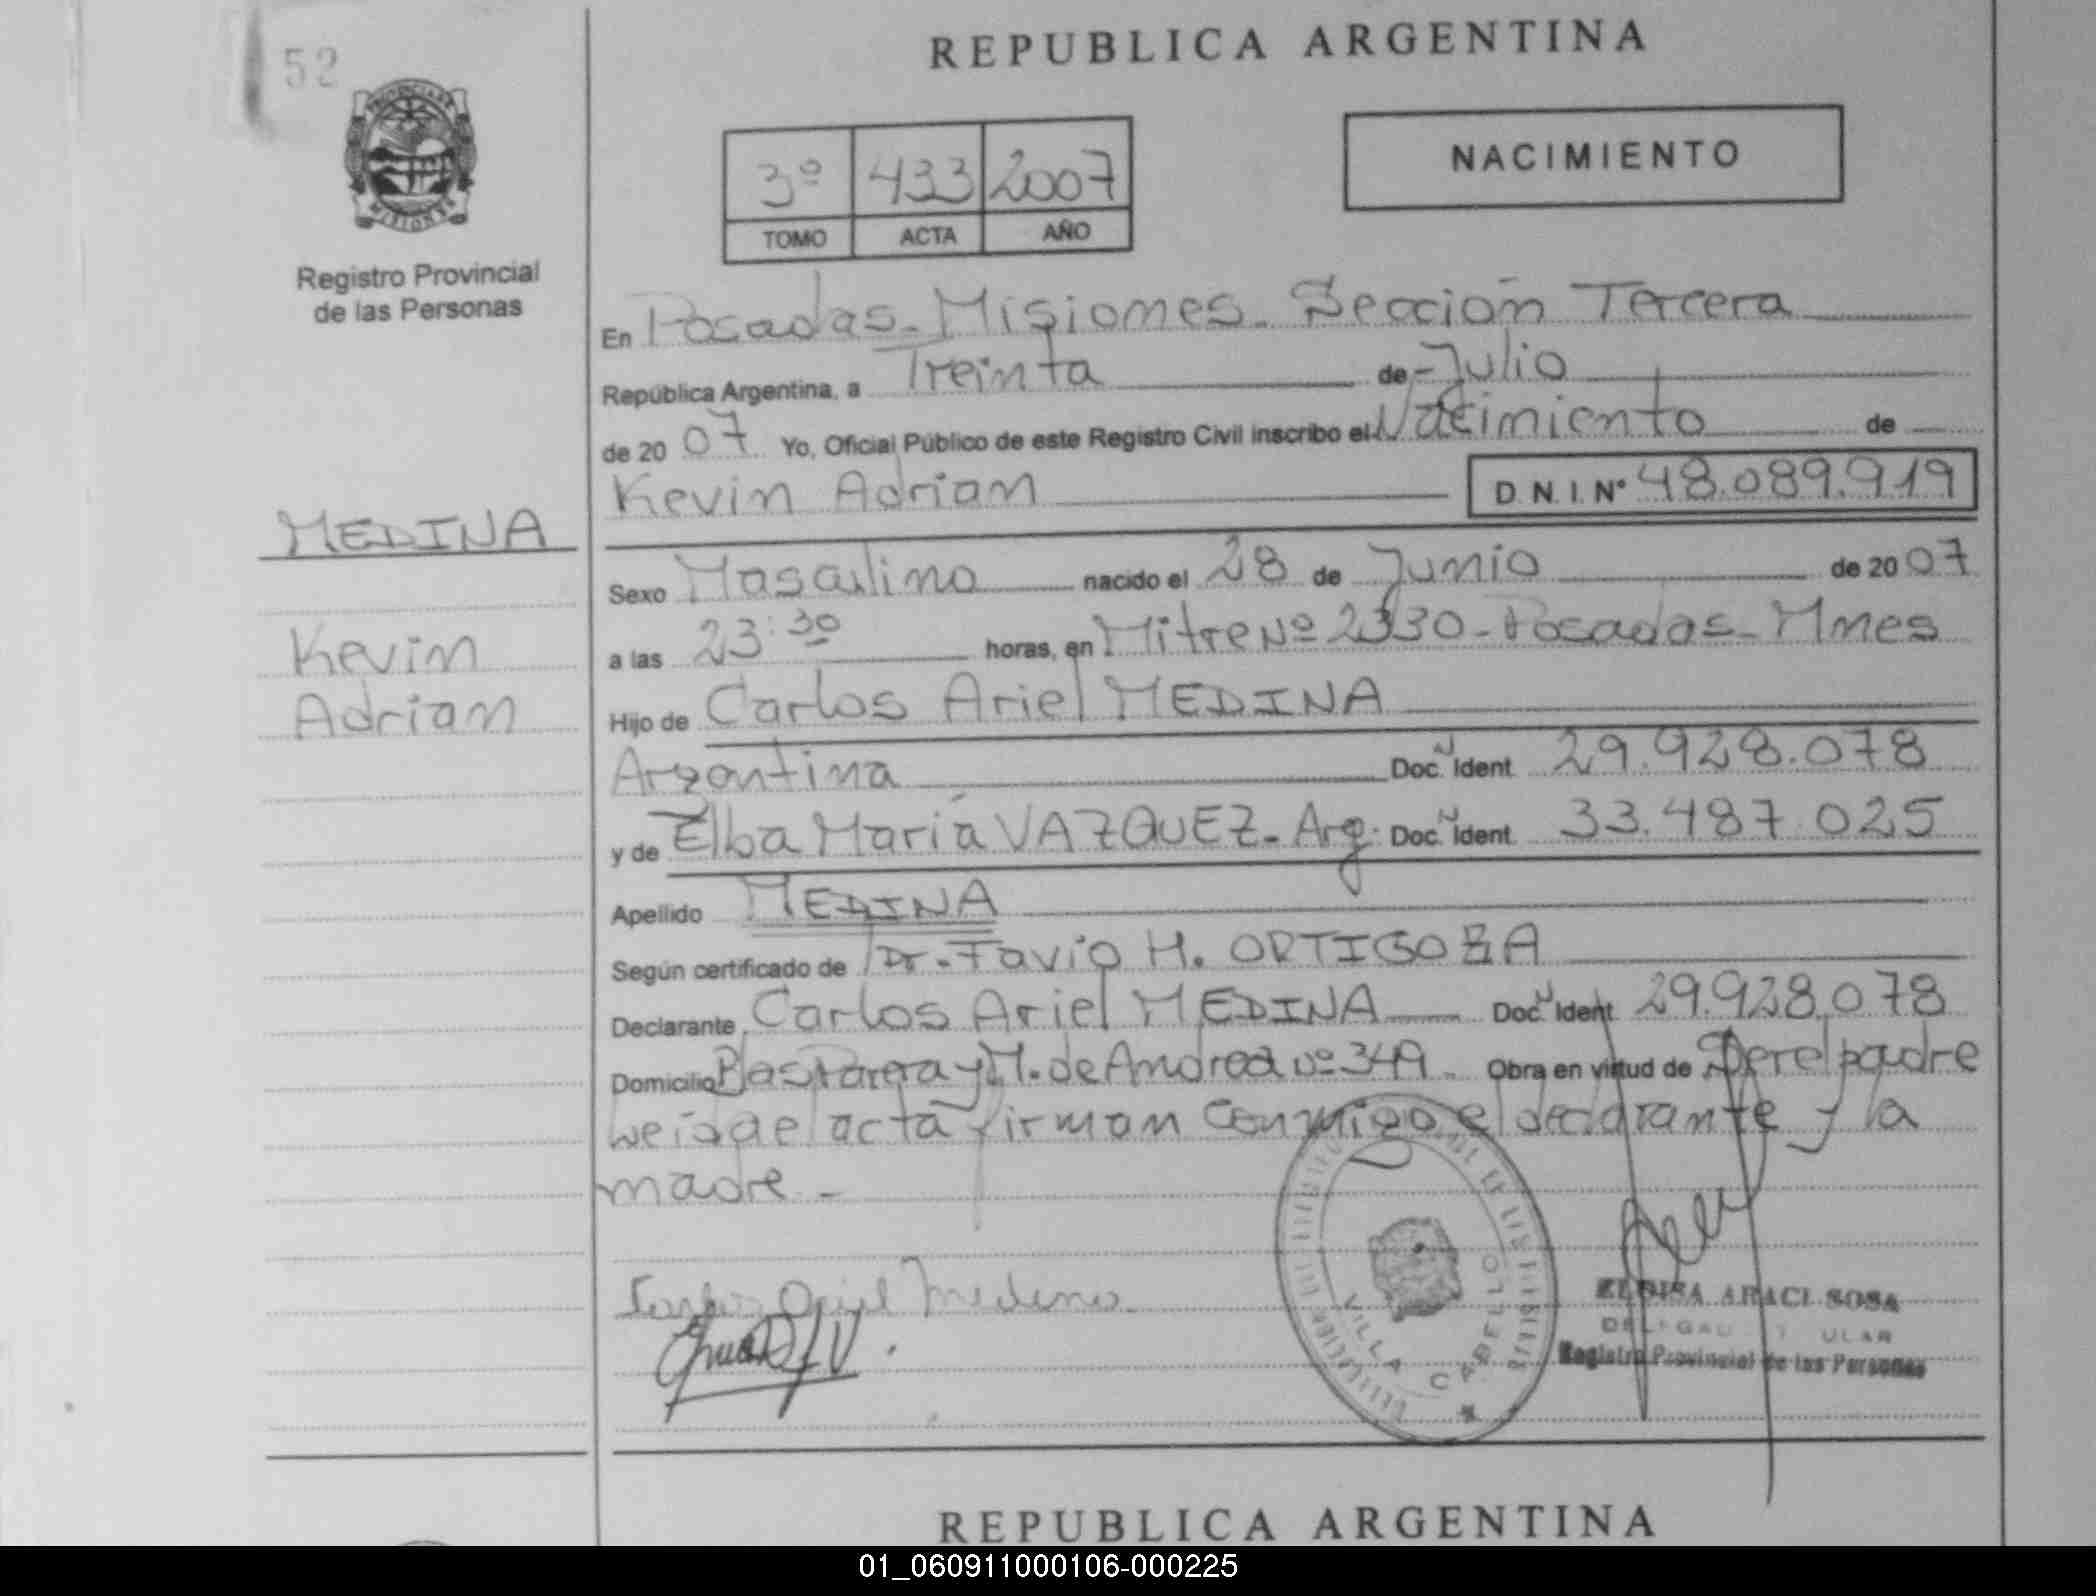 52
REPUBLICA ARGENTINA
3º 433 2007
TOMO ACTA AÑO
NACIMIENTO
PROVINCIA DE
MISIONES
Registro Provincial
de las Personas
En Posadas-Misiones-Sección Tercera
República Argentina, a Treinta de Julio
de 2007 Yo, Oficial Público de este Registro Civil inscribo el Nacimiento de
Kevin Adrian D.N.I. Nº 48.089.919
MEDINA
Kevin
Adrian
Sexo Masculino nacido el 28 de Junio de 2007
a las 23:30 horas, en Mitre Nº 2330-Posadas-Mnes
Hijo de Carlos Ariel MEDINA
Argentina Doc. Ident 29.928.078
y de Elba María VAZQUEZ-Arg. Doc. Ident 33.487.025
Apellido MEDINA
Según certificado de Dr. Favio H. ORTIGOZA
Declarante Carlos Ariel MEDINA Doc. Ident 29.928.078
Domicilio Blas Parera y M. de Andrea nº 349 Obra en virtud de Ser el padre
leida el acta firman conmigo el declarante y la
madre-
Ariel Medina
VILLA CABELLO
ARACI SOSA
Registro Provincial de las Personas
REPUBLICA ARGENTINA
01_060911000106-000225